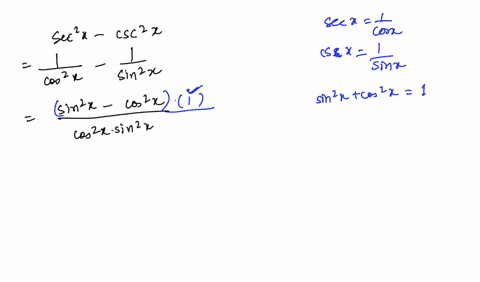 sec²x - csc²x
= 1/cos²x - 1/sin²x
= (sin²x - cos²x)·(1) / cos²x·sin²x
sec x = 1/cos x
csc x = 1/sin x
sin²x + cos²x = 1